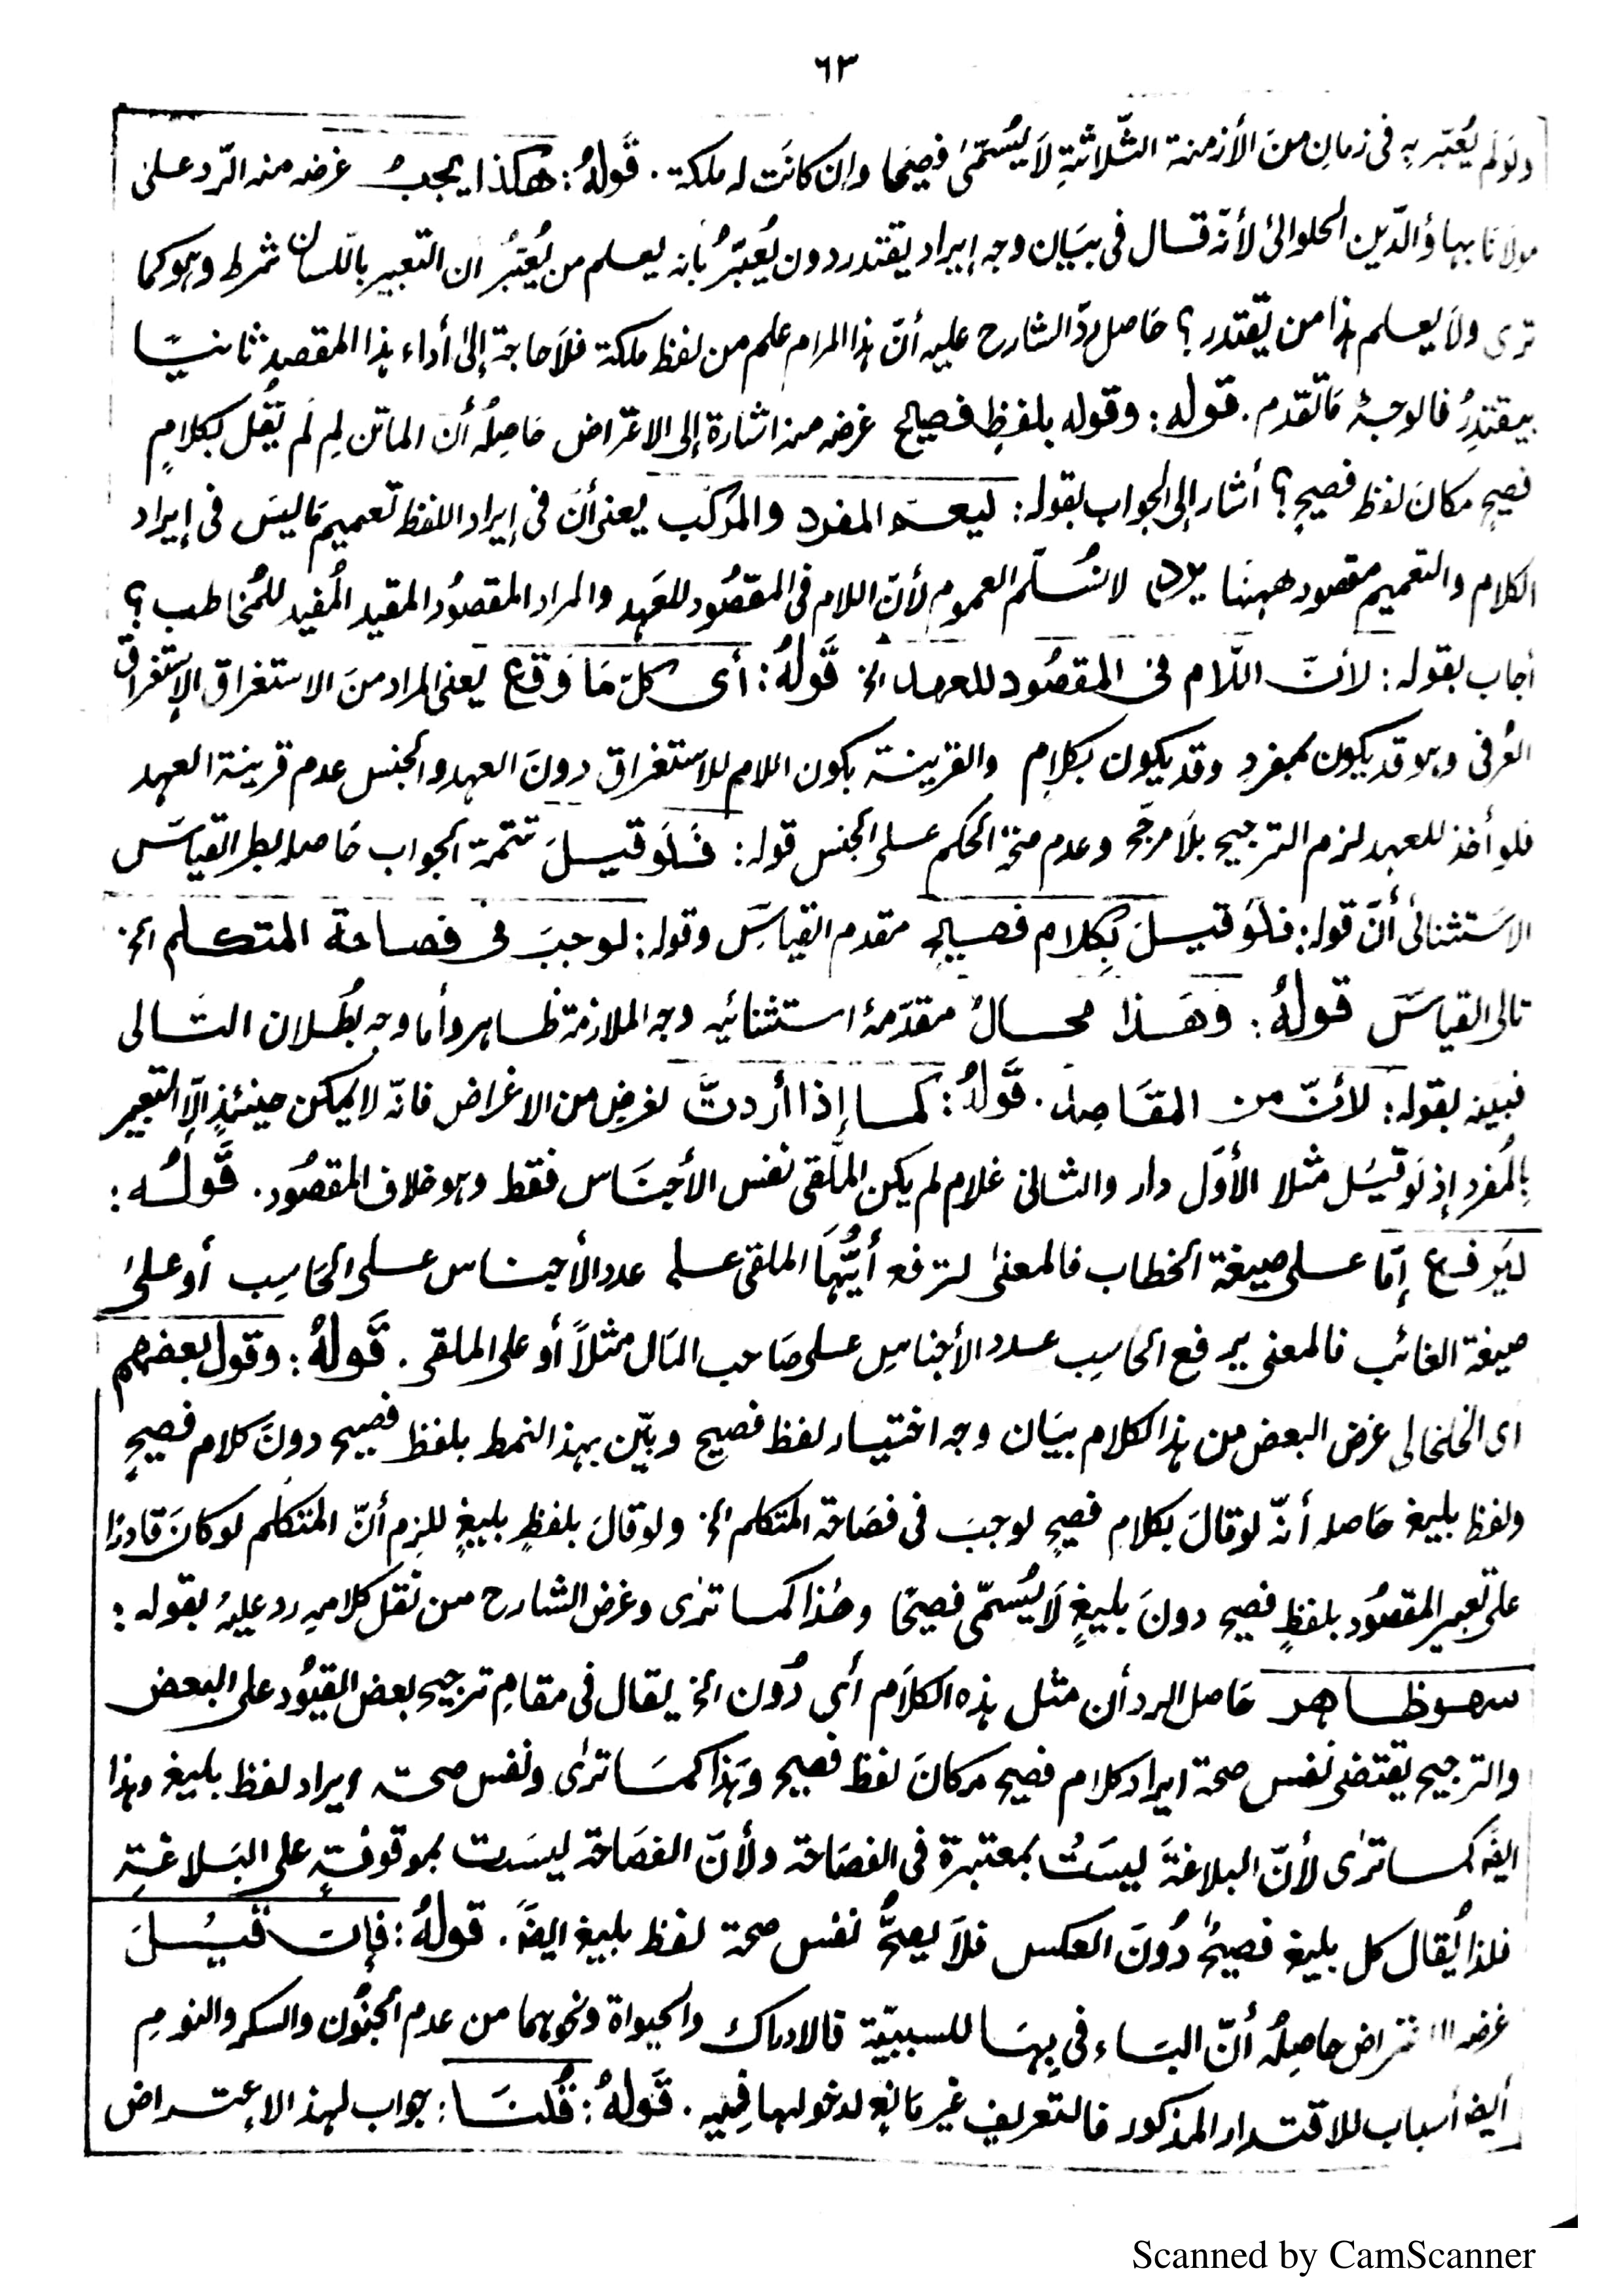 ٦٣
ولو لم يُعبّر به فى زمانٍ منَ الأزمنة الثّلاثةِ لاَ يُسَمّىٰ فصِيحًا وان كانَت له ملكة . قَولهُ : هكذا يجبُ غرضه منه الرّد علىٰ
مولانا بهاؤ الدّين الحلوائى لأنّه قال فى بيَانِ وجه إيراد يقتدر دون يُعبّرُ بأنه يعلم من يُعبّرُ ان التعبير باللّسان شرط وهو كما
ترى ولا يعلم هذا من يقتدر ؟ حَاصل ردّ الشارح عليه أنّ هذا المرام علم من لفظ ملكة فلاَحاجة إلىٰ أداء هذا المقصد ثانيًا
بيقتدِرُ فالوجهُ مَا تقدم . قوله : وقوله بلفظٍ فصيح غرضه منه اشارة إلى الاعتراض حَاصِلهُ أن الماتن لِم لَم يقُل بكلامٍ
فصيحٍ مكانَ لفظ فصيحٍ ؟ أشار إلى الجواب بقوله : ليعم المفرد والمركب يعنى أنّ فى إيراد اللفظ تعميم مَا ليسَ فى إيراد
الكلام والتعميم مقصود ههنَا لا نُسلّم العموم لأنّ اللام فى المقصُود للعَهد والمراد المقصُود المقيد المُفيد للمُخاطب ؟
أجاب بقوله : لأنّ اللّام فى المقصُود للعهد الخ قَولهُ : أى كلّ مَا وَقع يعنى المراد منَ الاستغراق الإستغراق
العُرفى وهو قد يكون بمفردٍ وقد يكون بكلامٍ والقرينة بكون اللام للاستغراق دونَ العهد والجنس عدم قرينة العهد
فلو أخذ للعهد لزم الترجيح بلاَ مرجّح وعدم صحّة الحكم على الجنس قوله : فَلَو قيلَ تتمة الجواب حَاصله بطر القياسّ
الاسَتثنائى أنّ قوله : فلَو قيلَ بكِلام فصيحٍ مقدم القياسّ وقوله : لوجبَ فى فصاحة المتكلم الخ
تالى القياسّ قولهُ : وَهَذا محالٌ مقدّمهٔ استثنائيه وجه الملازمة ظاهر وأما وجه بُطلان التالى
فبينه بقوله : لأنّ من المقَاصِد . قَولهُ : كما إذا أردتَّ لغرضٍ من الاغراض فانّه لا يمكن حينئذٍ إلّا التعبير
بالمُفرد إذ لَو قيل مثلا الأوّل دار والثانى غلام لم يكن المُلقى نفس الأجنَاس فقط وهو خلاف المقصُود . قَولُه :
ليَرفع إمّا على صيغة الخطاب فالمعنىٰ لترفع أيُّهَا الملقى على عدد الأجناس على الحَاسِب أو علىٰ
صيغة الغائب فالمعنى يرفع الحاسِب عدد الأجناسِ على صَاحب المَال مثلاً أو على الملقى . قَولهُ : وقول بعضهم
اى الخلخالى غرض البعض من هذا الكلام بيَان وجه اختيار لفظ فصيح وبيّن بهذ النمط بلفظ فصيح دونَ كلام فصيحٍ
ولفظ بليغ حَاصله أنّه لو قالَ بكلام فصيحٍ لوجبَ فى فصَاحة المتكلم الخ ولو قالَ بلفظٍ بليغٍ للزم أنّ المتكلّم لو كانَ قادرًا
على تعبير المقصُود بلفظٍ فصيح دونَ بليغٍ لَا يُسَمّى فصيحًا وهٰذا كما ترٰى وغرض الشارح من نقل كلامه رد عليهُ بقوله :
سهو ظاهر حَاصل الرد أن مثل هذه الكلَام أى دُون الخ يقال فى مقامِ ترجيح بعض القيُود على البعض
والترجيح يقتضى نفس صحة ايراد كلام فصيح مكانَ لفظ فصيح وَهٰذا كمَا ترىٰ ونفس صحته ايراد لفظ بليغ وهذا
ايضًا كما ترٰى لأنّ البلاغةَ ليسَتْ بمعتبرة فى الفصَاحة ولأنّ الفصَاحة ليسَت بموقوفةٍ على البَلاغةِ
فلذا يُقال كل بليغ فصيحٌ دُونَ العكس فلاَ يصحُّ نفس صحة لفظ بليغ ايضًا . قولهُ : فإن قيلَ
غرضه الاعتراض حاصِلُه أنّ البَاء فى بِهَا للسببيّة فالادراك والحيواة ونحوهما من عدم الجنُون والسكر والنومِ
أيضا أسباب للاقتدار المذكور فالتعريف غير مَانعٍ لدخولها فِيه . قَولهُ : قُلنَا : جواب لهذ الإعتراض
Scanned by CamScanner